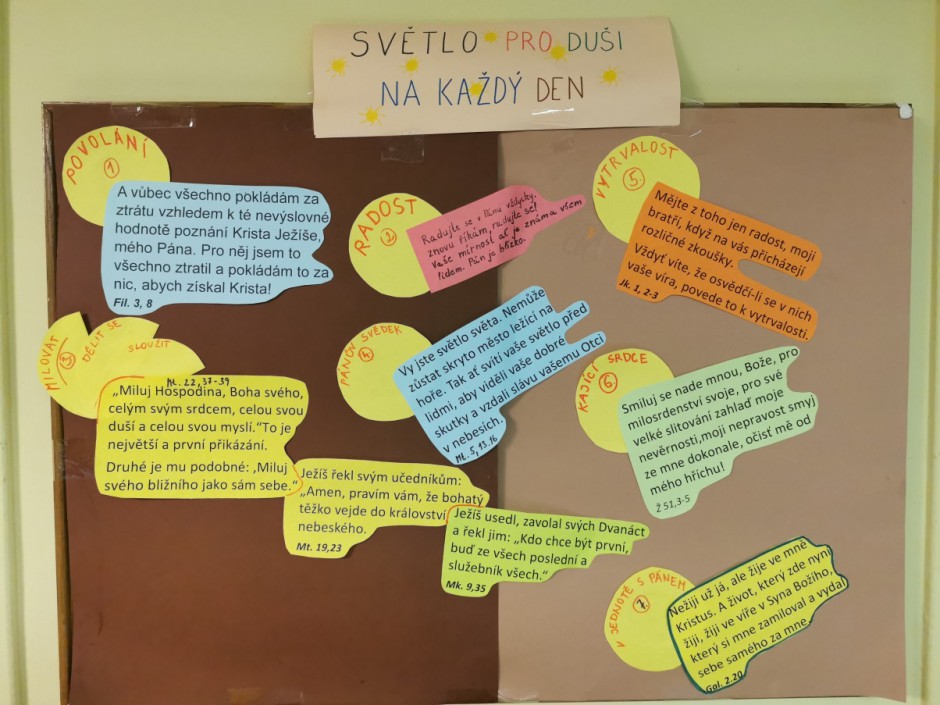 SVĚTLO PRO DUŠI
NA KAŽDÝ DEN
POVOLÁNÍ
1
A vůbec všechno pokládám za
ztrátu vzhledem k té nevýslovné
hodnotě poznání Krista Ježíše,
mého Pána. Pro něj jsem to
všechno ztratil a pokládám to za
nic, abych získal Krista!
Fil. 3, 8
RADOST
2
Radujte se v Pánu vždycky,
znovu říkám, radujte se!
Vaše mírnost ať je známa všem
lidem. Pán je blízko.
MILOVAT
3
DĚLIT SE
SLOUŽIT
Mt. 22, 37-39
„Miluj Hospodina, Boha svého,
celým svým srdcem, celou svou
duší a celou svou myslí.“To je
největší a první přikázání.
Druhé je mu podobné: ‚Miluj
svého bližního jako sám sebe.“
Ježíš řekl svým učedníkům:
„Amen, pravím vám, že bohatý
těžko vejde do království
nebeského.
Mt. 19,23
Ježíš usedl, zavolal svých Dvanáct
a řekl jim: „Kdo chce být první,
buď ze všech poslední a
služebník všech.“
Mk. 9,35
PÁNŮV SVĚDEK
4
Vy jste světlo světa. Nemůže
zůstat skryto město ležící na
hoře. Tak ať svítí vaše světlo před
lidmi, aby viděli vaše dobré
skutky a vzdali slávu vašemu Otci
v nebesích.
Mt. 5, 13.16
VYTRVALOST
5
Mějte z toho jen radost, moji
bratři, když na vás přicházejí
rozličné zkoušky.
Vždyť víte, že osvědčí-li se v nich
vaše víra, povede to k vytrvalosti.
Jk. 1, 2-3
KAJÍCÍ SRDCE
6
Smiluj se nade mnou, Bože, pro
milosrdenství svoje, pro své
velké slitování zahlaď moje
nevěrnosti,moji nepravost smyj
ze mne dokonale, očisť mě od
mého hříchu!
Ž 51,3-5
V JEDNOTĚ S PÁNEM
7
Nežiji už já, ale žije ve mně
Kristus. A život, který zde nyní
žiji, žiji ve víře v Syna Božího,
který si mne zamiloval a vydal
sebe samého za mne
Gal. 2.20